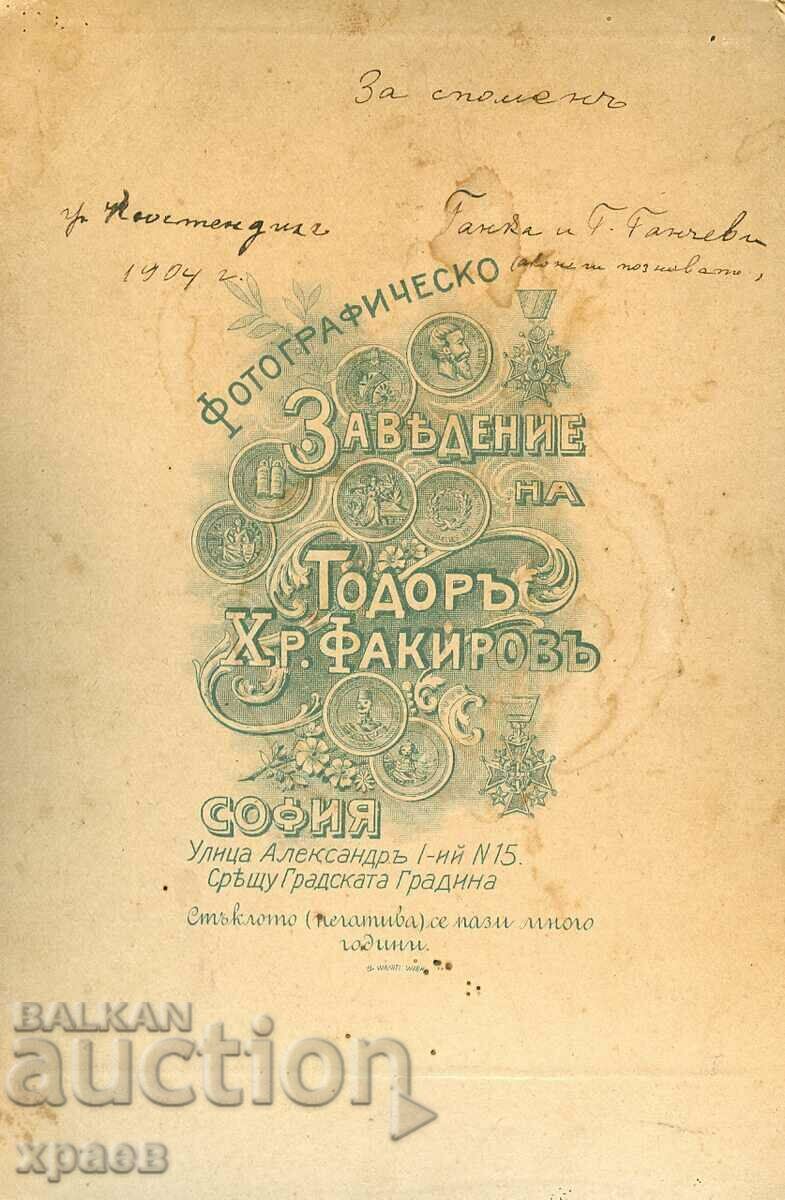 За споменъ
гр. Кюстендилъ
1904 г.
Ганка и Г. Ганчеви
(ако не ги познавате,
Фотографическо
Заведение
на
Тодоръ
Хр. Факировъ
София
Улица Александръ I-ий N 15.
Срѣщу Градската Градина
Стъклото (негатива) се пази много
години.
BALKAN
auction
храев